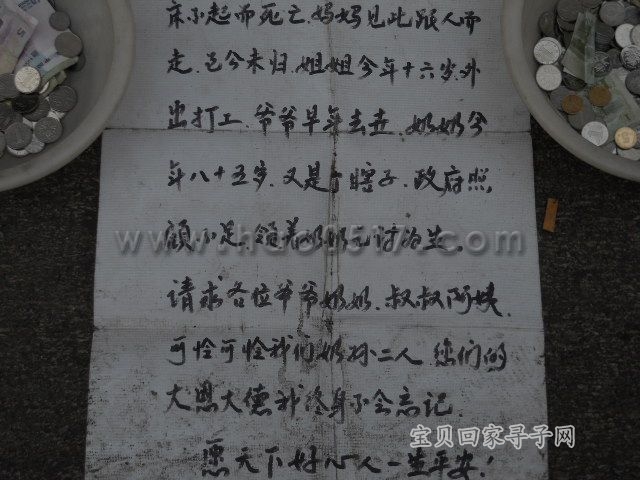 床不起而死亡.妈妈见此跟人而
走.至今未归.姐姐今年十六岁.外
出打工.爷爷早年去世.奶奶今
年八十五岁.又是个瞎子.政府照
顾不足.领着奶奶无讨为生.
请求各位爷爷奶奶.叔叔阿姨.
可怜可怜我们奶孙二人.您们的
大恩大德我终身不会忘记.
愿天下好心人一生平安!
宝贝回家寻子网